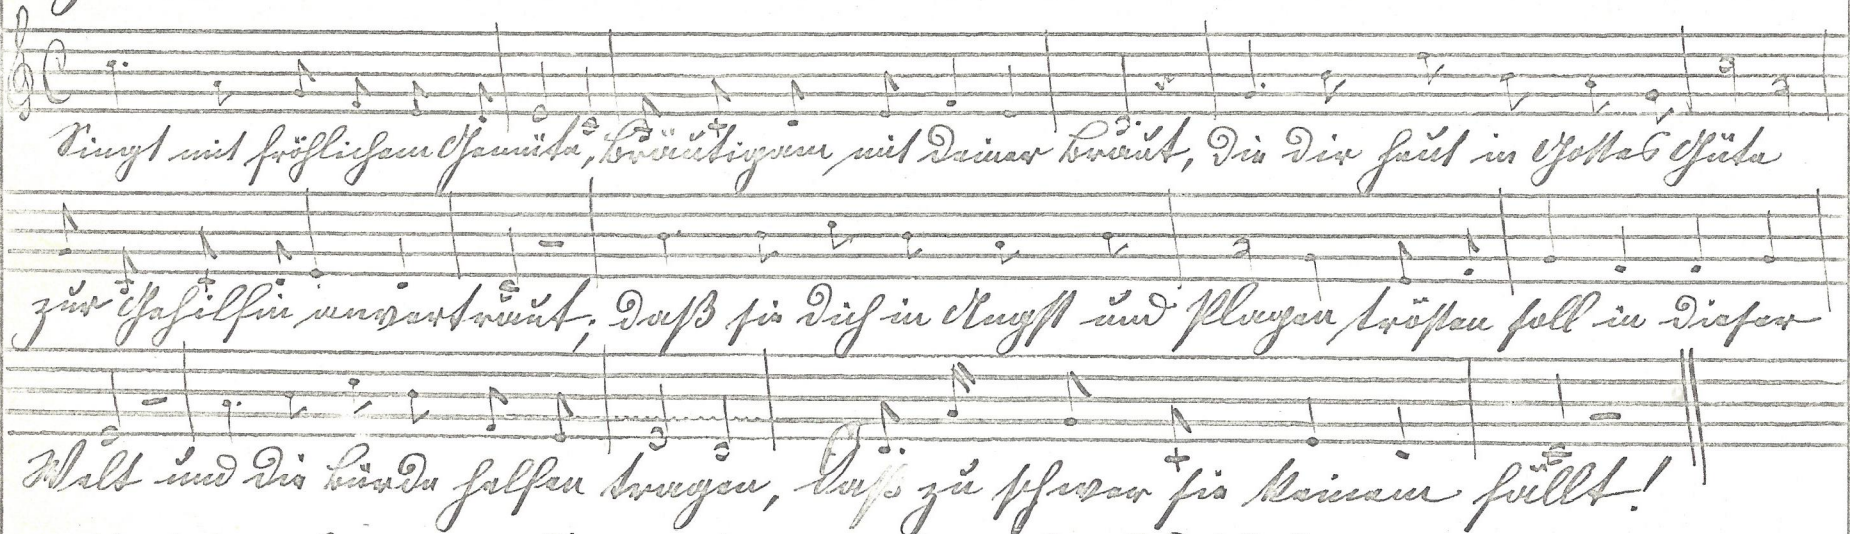 Singt mit fröhlichem Gemüte, Bräutigam mit deiner Braut, die dir heut in Gottes Güte
zur Gehilfin anvertraut; daß sie dich in Angst und Plagen trösten soll in dieser
Welt und die Bürde helfen tragen, daß zu schwer sie keinem fällt!